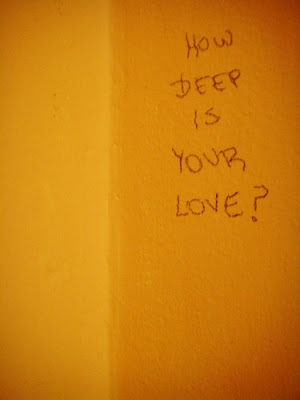 HOW
DEEP
IS
YOUR
LOVE?